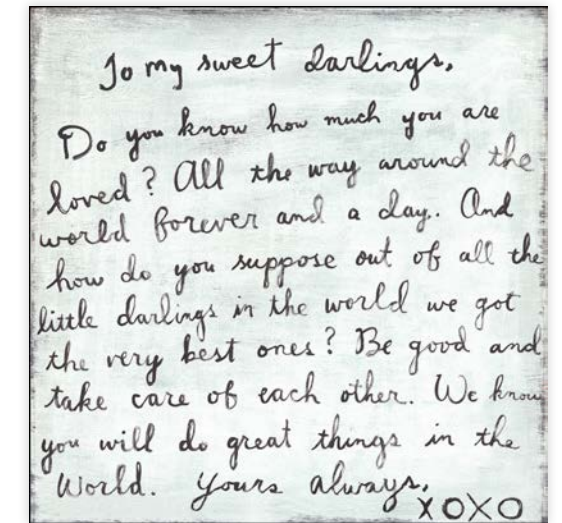 To my sweet darlings,
Do you know how much you are
loved? All the way around the
world forever and a day.. And
how do you suppose out of all the
little darlings in the world we got
the very best ones? Be good and
take care of each other. We know
you will do great things in the
World. Yours always,
XOXO